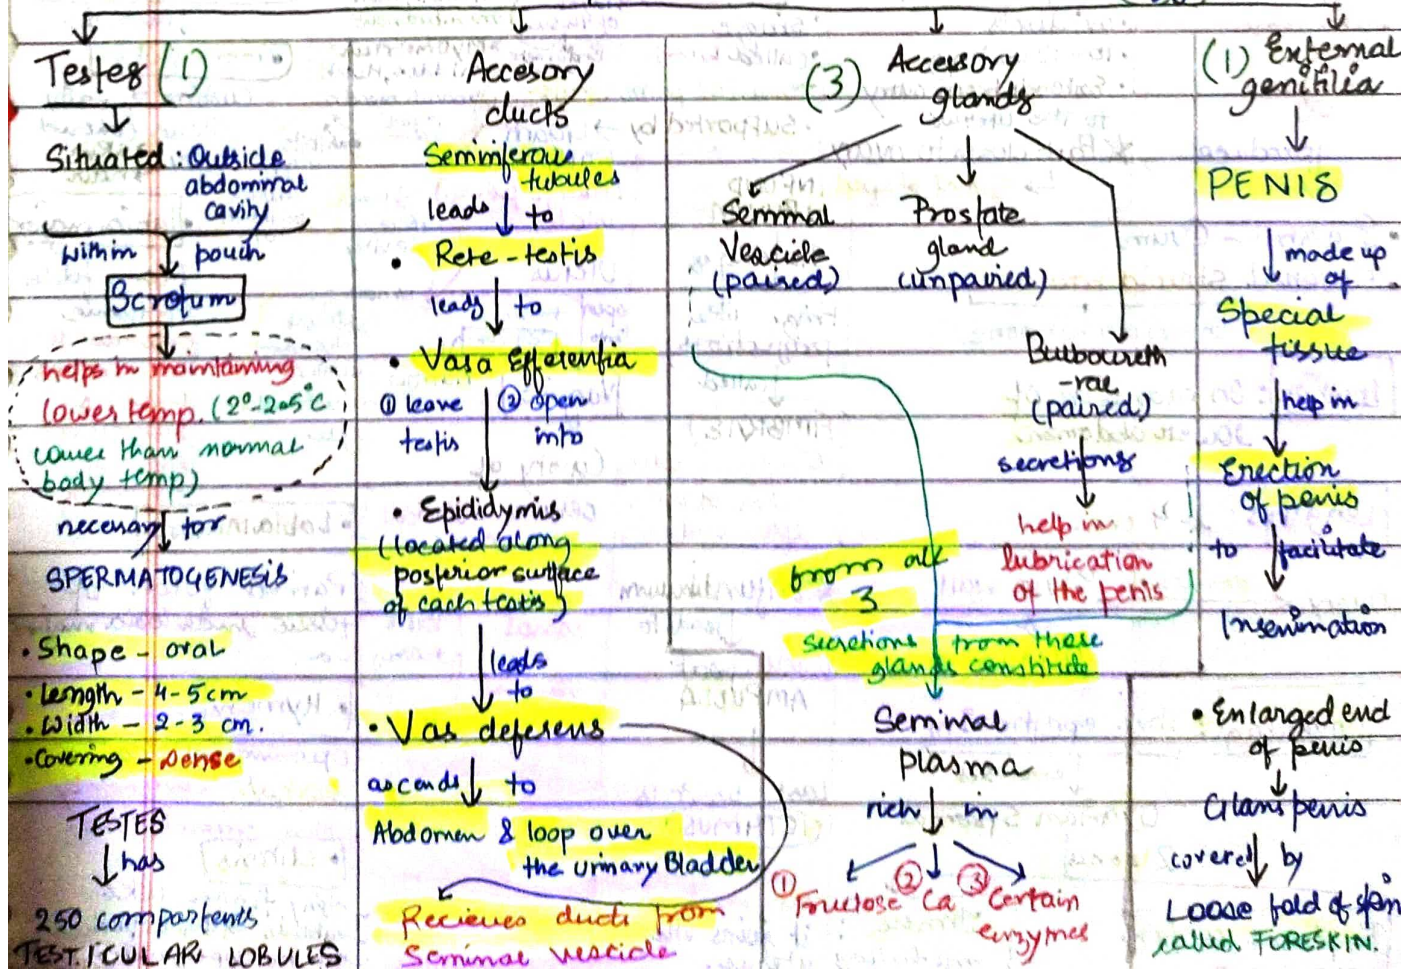 Testes (1)
Situated : Outside
abdominal
cavity
within pouch
Scrotum
helps in maintaining
lower temp. (2°-2.5°C
lower than normal
body temp)
necessary for
SPERMATOGENESIS
• Shape - oval
• Length - 4-5cm
• Width - 2-3 cm.
• Covering - Dense
TESTES
has
250 compartents
TESTICULAR LOBULES
Accesory
ducts
Seminiferous
tubules
leads to
• Rete-testis
leads to
• Vasa Efferentia
① leave ② open
testis into
• Epididymis
(located along
posterior surface
of each testis)
leads
to
• Vas deferens
ascends to
Abdomen & loop over
the urinary Bladder
Recieves ducts from
Seminal vescicle
(3) Accessory
glands
Seminal
Vescicle
(paired)
Prostate
gland
(unpaired)
Bulboureth
-rae
(paired)
secretions
help in
lubrication
of the penis
from all
3
secretions from these
glands constitute
Seminal
plasma
rich in
① Fructose ② Ca ③ Certain
enzymes
(1) External
genitilia
PENIS
made up
of
Special
tissue
help in
Erection
of penis
to facilitate
Insemination
• Enlarged end
of penis
Glans penis
covered by
Loose fold of skin
called FORESKIN.